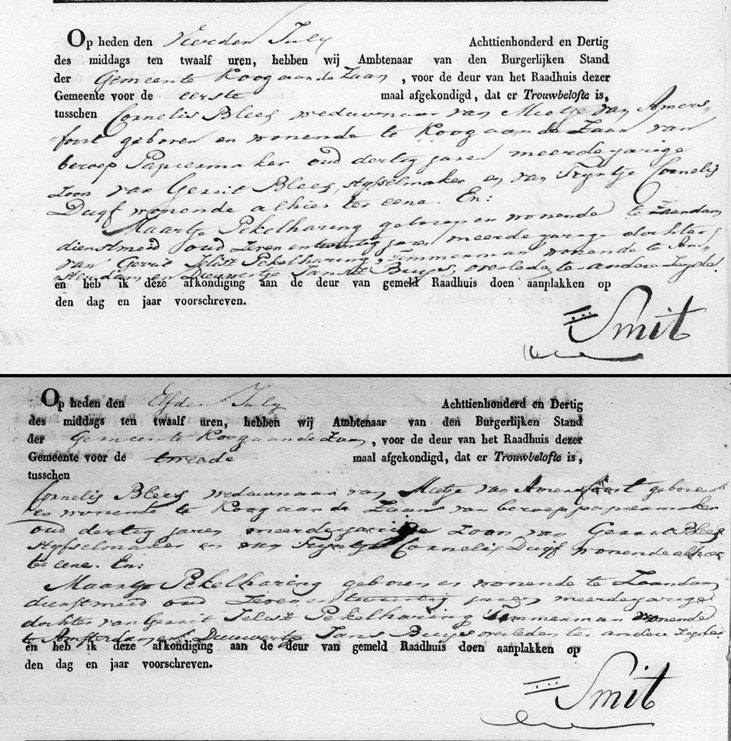 Op heden den Vierden July Achttienhonderd en Dertig
des middags ten twaalf uren, hebben wij Ambtenaar van den Burgerlijken Stand
der Gemeente Koog aan de Zaan, voor de deur van het Raadhuis dezer
Gemeente voor de eerste maal afgekondigd, dat er Trouwbelofte is,
tusschen Cornelis Blees weduwnaar van Metje van Amers-
foort geboren en wonende te Koog aan de Zaan van
beroep Papiermaker oud dertig jaren meerderjarige
Zoon van Gerrit Blees, Styfselmaker en van Tryntje Cornelis
Duyf wonende alhier ter eene. En:
Maartje Pekelharing geboren en wonende te Zaandam
dienstmeid oud Zeven en twintig jaren meerderjarige dochter
van Gerrit Jelisz Pekelharing, Timmerman wonende te Am-
sterdam en Dieuwertje Jans Buys, overleden te andere Zyde.
en heb ik deze afkondiging aan de deur van gemeld Raadhuis doen aanplakken op
den dag en jaar voorschreven.
Smit
Op heden den Elfden July Achttienhonderd en Dertig
des middags ten twaalf uren, hebben wij Ambtenaar van den Burgerlijken Stand
der Gemeente Koog aan de Zaan, voor de deur van het Raadhuis dezer
Gemeente voor de tweede maal afgekondigd, dat er Trouwbelofte is,
tusschen
Cornelis Blees weduwnaar van Metje van Amersfoort geboren
en wonende te Koog aan de Zaan van beroep papiermaker
oud dertig jaren meerderjarige Zoon van Gerrit Blees
Styfselmaker en van Tryntje Cornelis Duyf wonende alhier
te eene. En:
Maartje Pekelharing geboren en wonende te Zaandam
dienstmeid oud Zeven en twintig jaren meerderjarige
dochter van Gerrit Jelisz Pekelharing Timmerman wonende
te Amsterdam en Dieuwertje Jans Buys overleden ter andere Zyde
en heb ik deze afkondiging aan de deur van gemeld Raadhuis doen aanplakken op
den dag en jaar voorschreven.
Smit